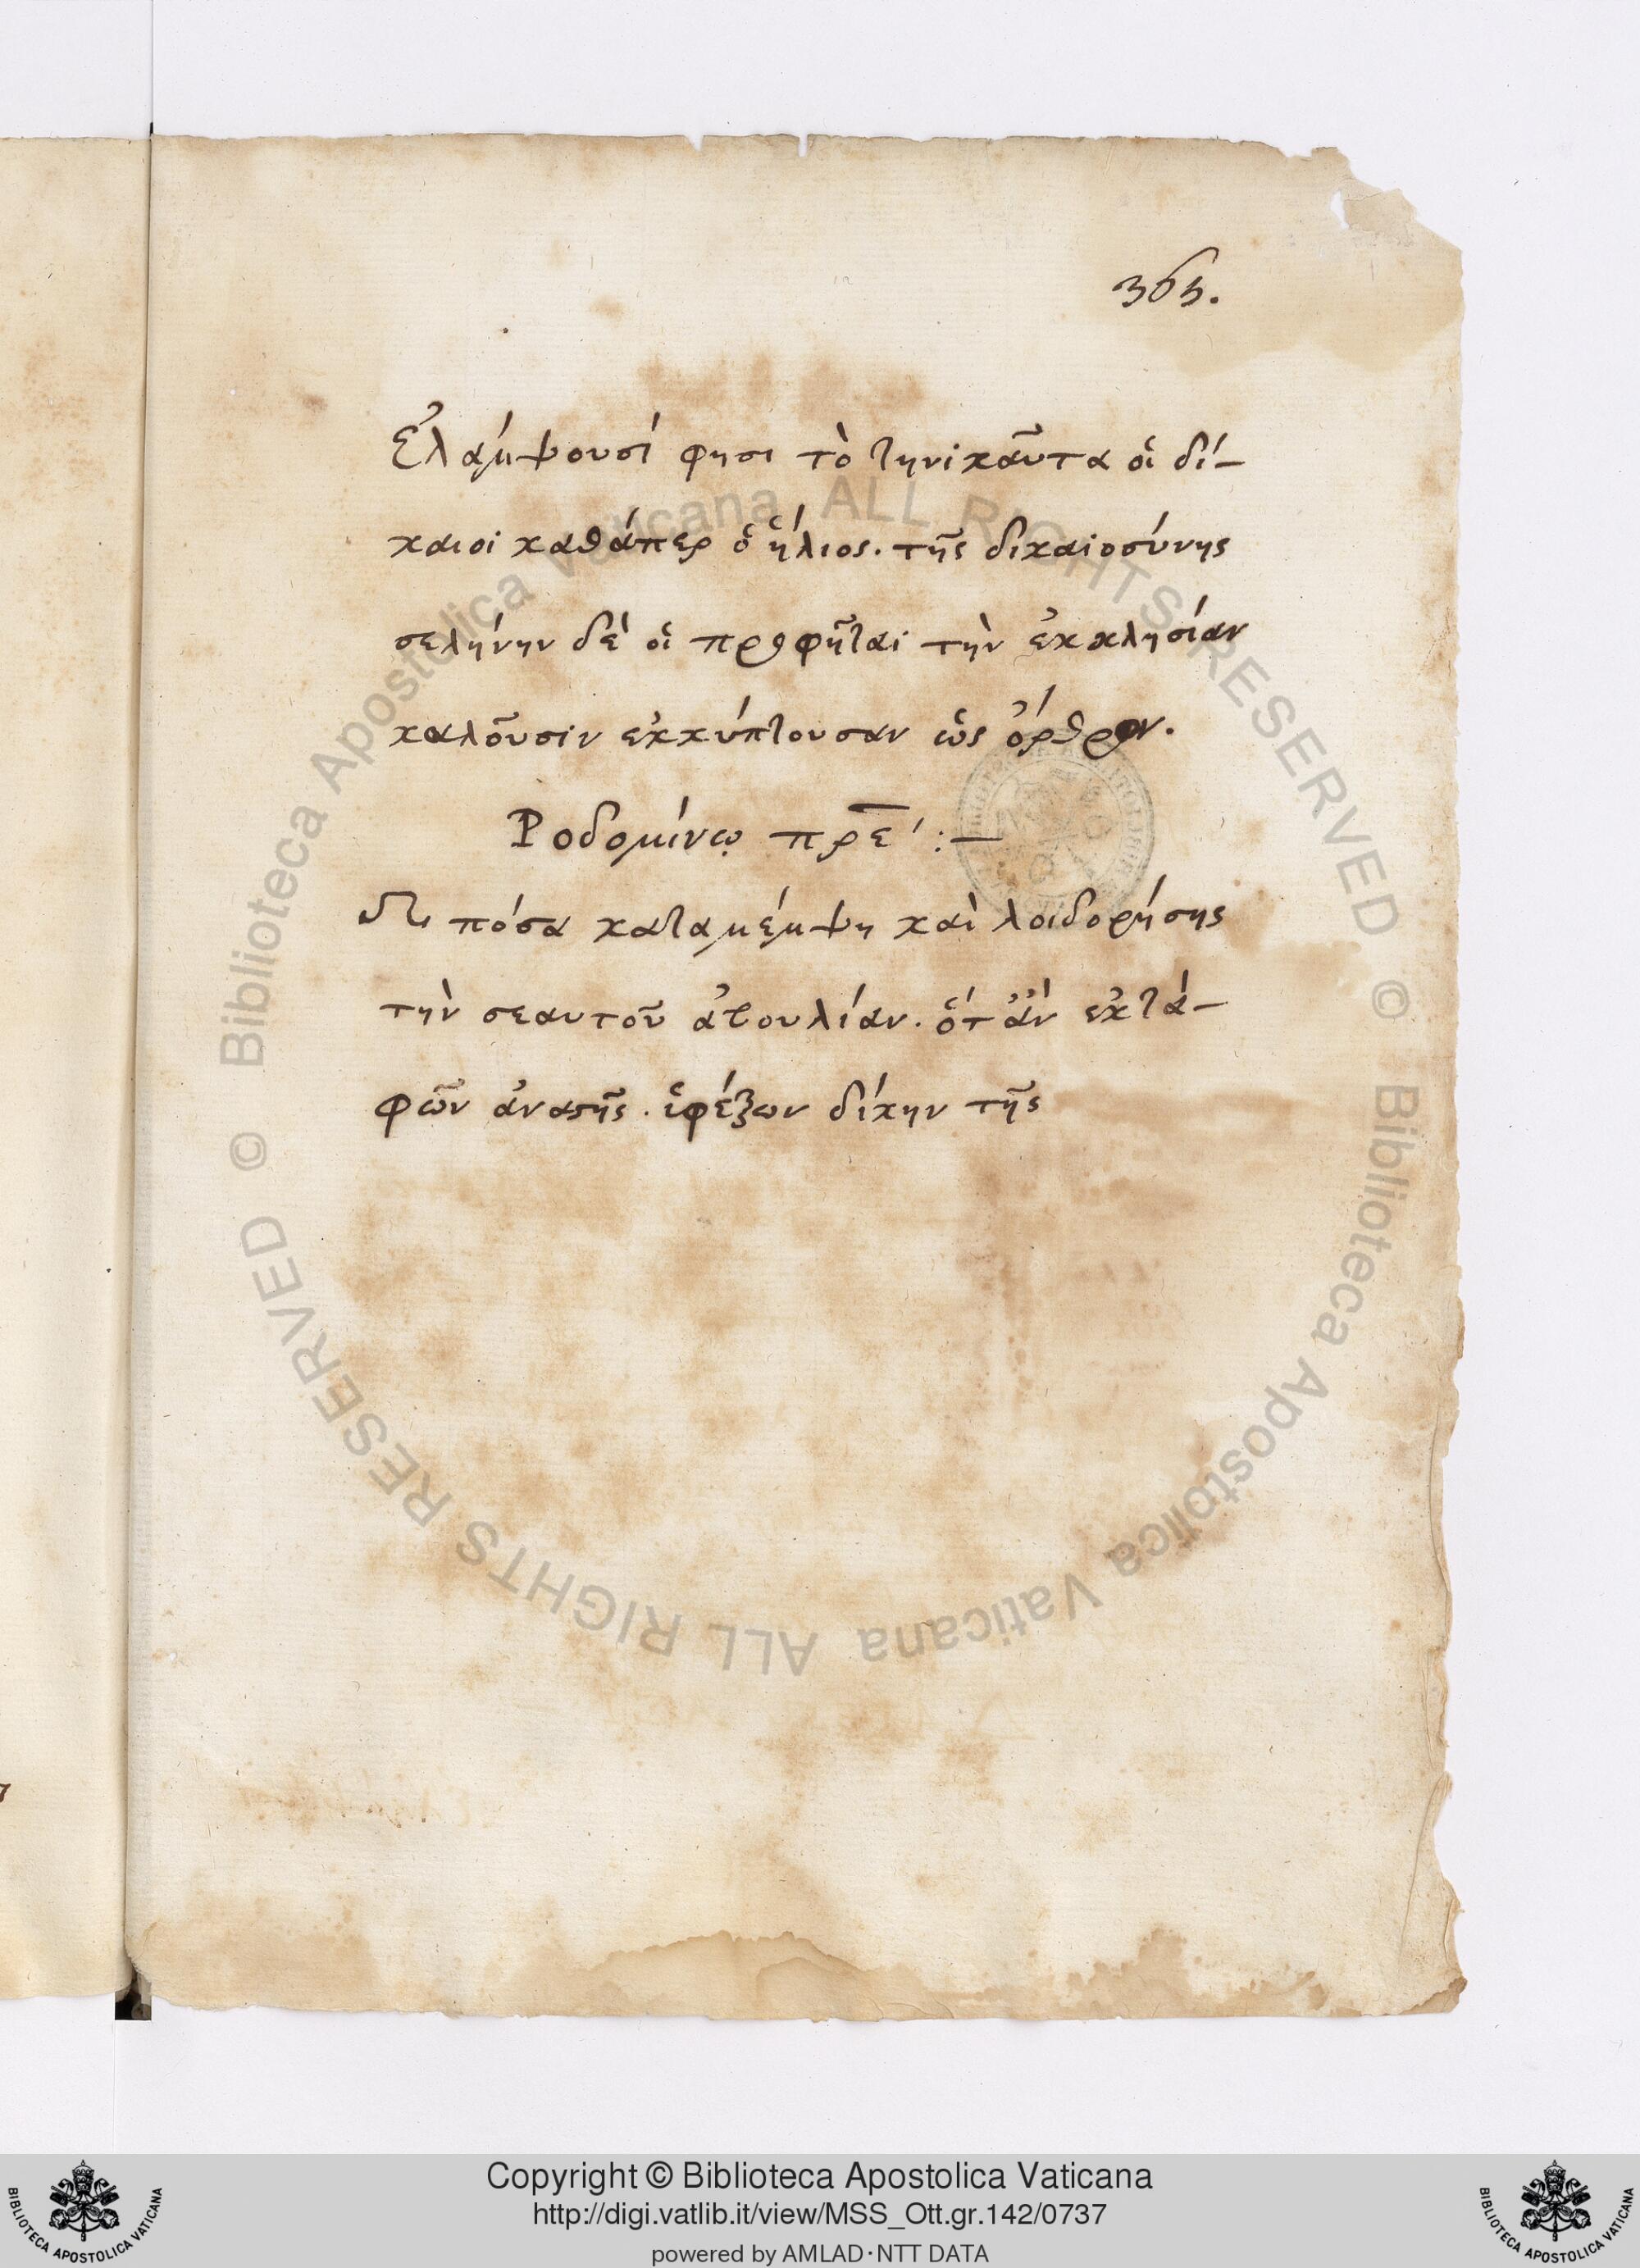 365.
Ἐλάμψουσί φησι τὸ τηνικαῦτα οἱ δί-
καιοι καθάπερ ὁ ἥλιος. τῆς δικαιοσύνης
σελήνην δὲ οἱ προφῆται τὴν ἐκκλησίαν
καλοῦσιν ἐκκύπτουσαν ὡς ὄρθρον.
Ροδομίνῳ πρε :—
πόσα καταμέμψη καὶ λοιδορήσης
τὴν σεαυτοῦ ἀβουλίαν. ὅτ ἂν ἐκτά-
φῶν ἀναστῆς. ὑφέξων δίκην τῆς
Biblioteca Apostolica Vaticana ALL RIGHTS RESERVED ©
Biblioteca Apostolica Vaticana ALL RIGHTS RESERVED ©
Copyright © Biblioteca Apostolica Vaticana
http://digi.vatlib.it/view/MSS_Ott.gr.142/0737
powered by AMLAD·NTT DATA
BIBLIOTECA APOSTOLICA VATICANA
BIBLIOTECA APOSTOLICA VATICANA